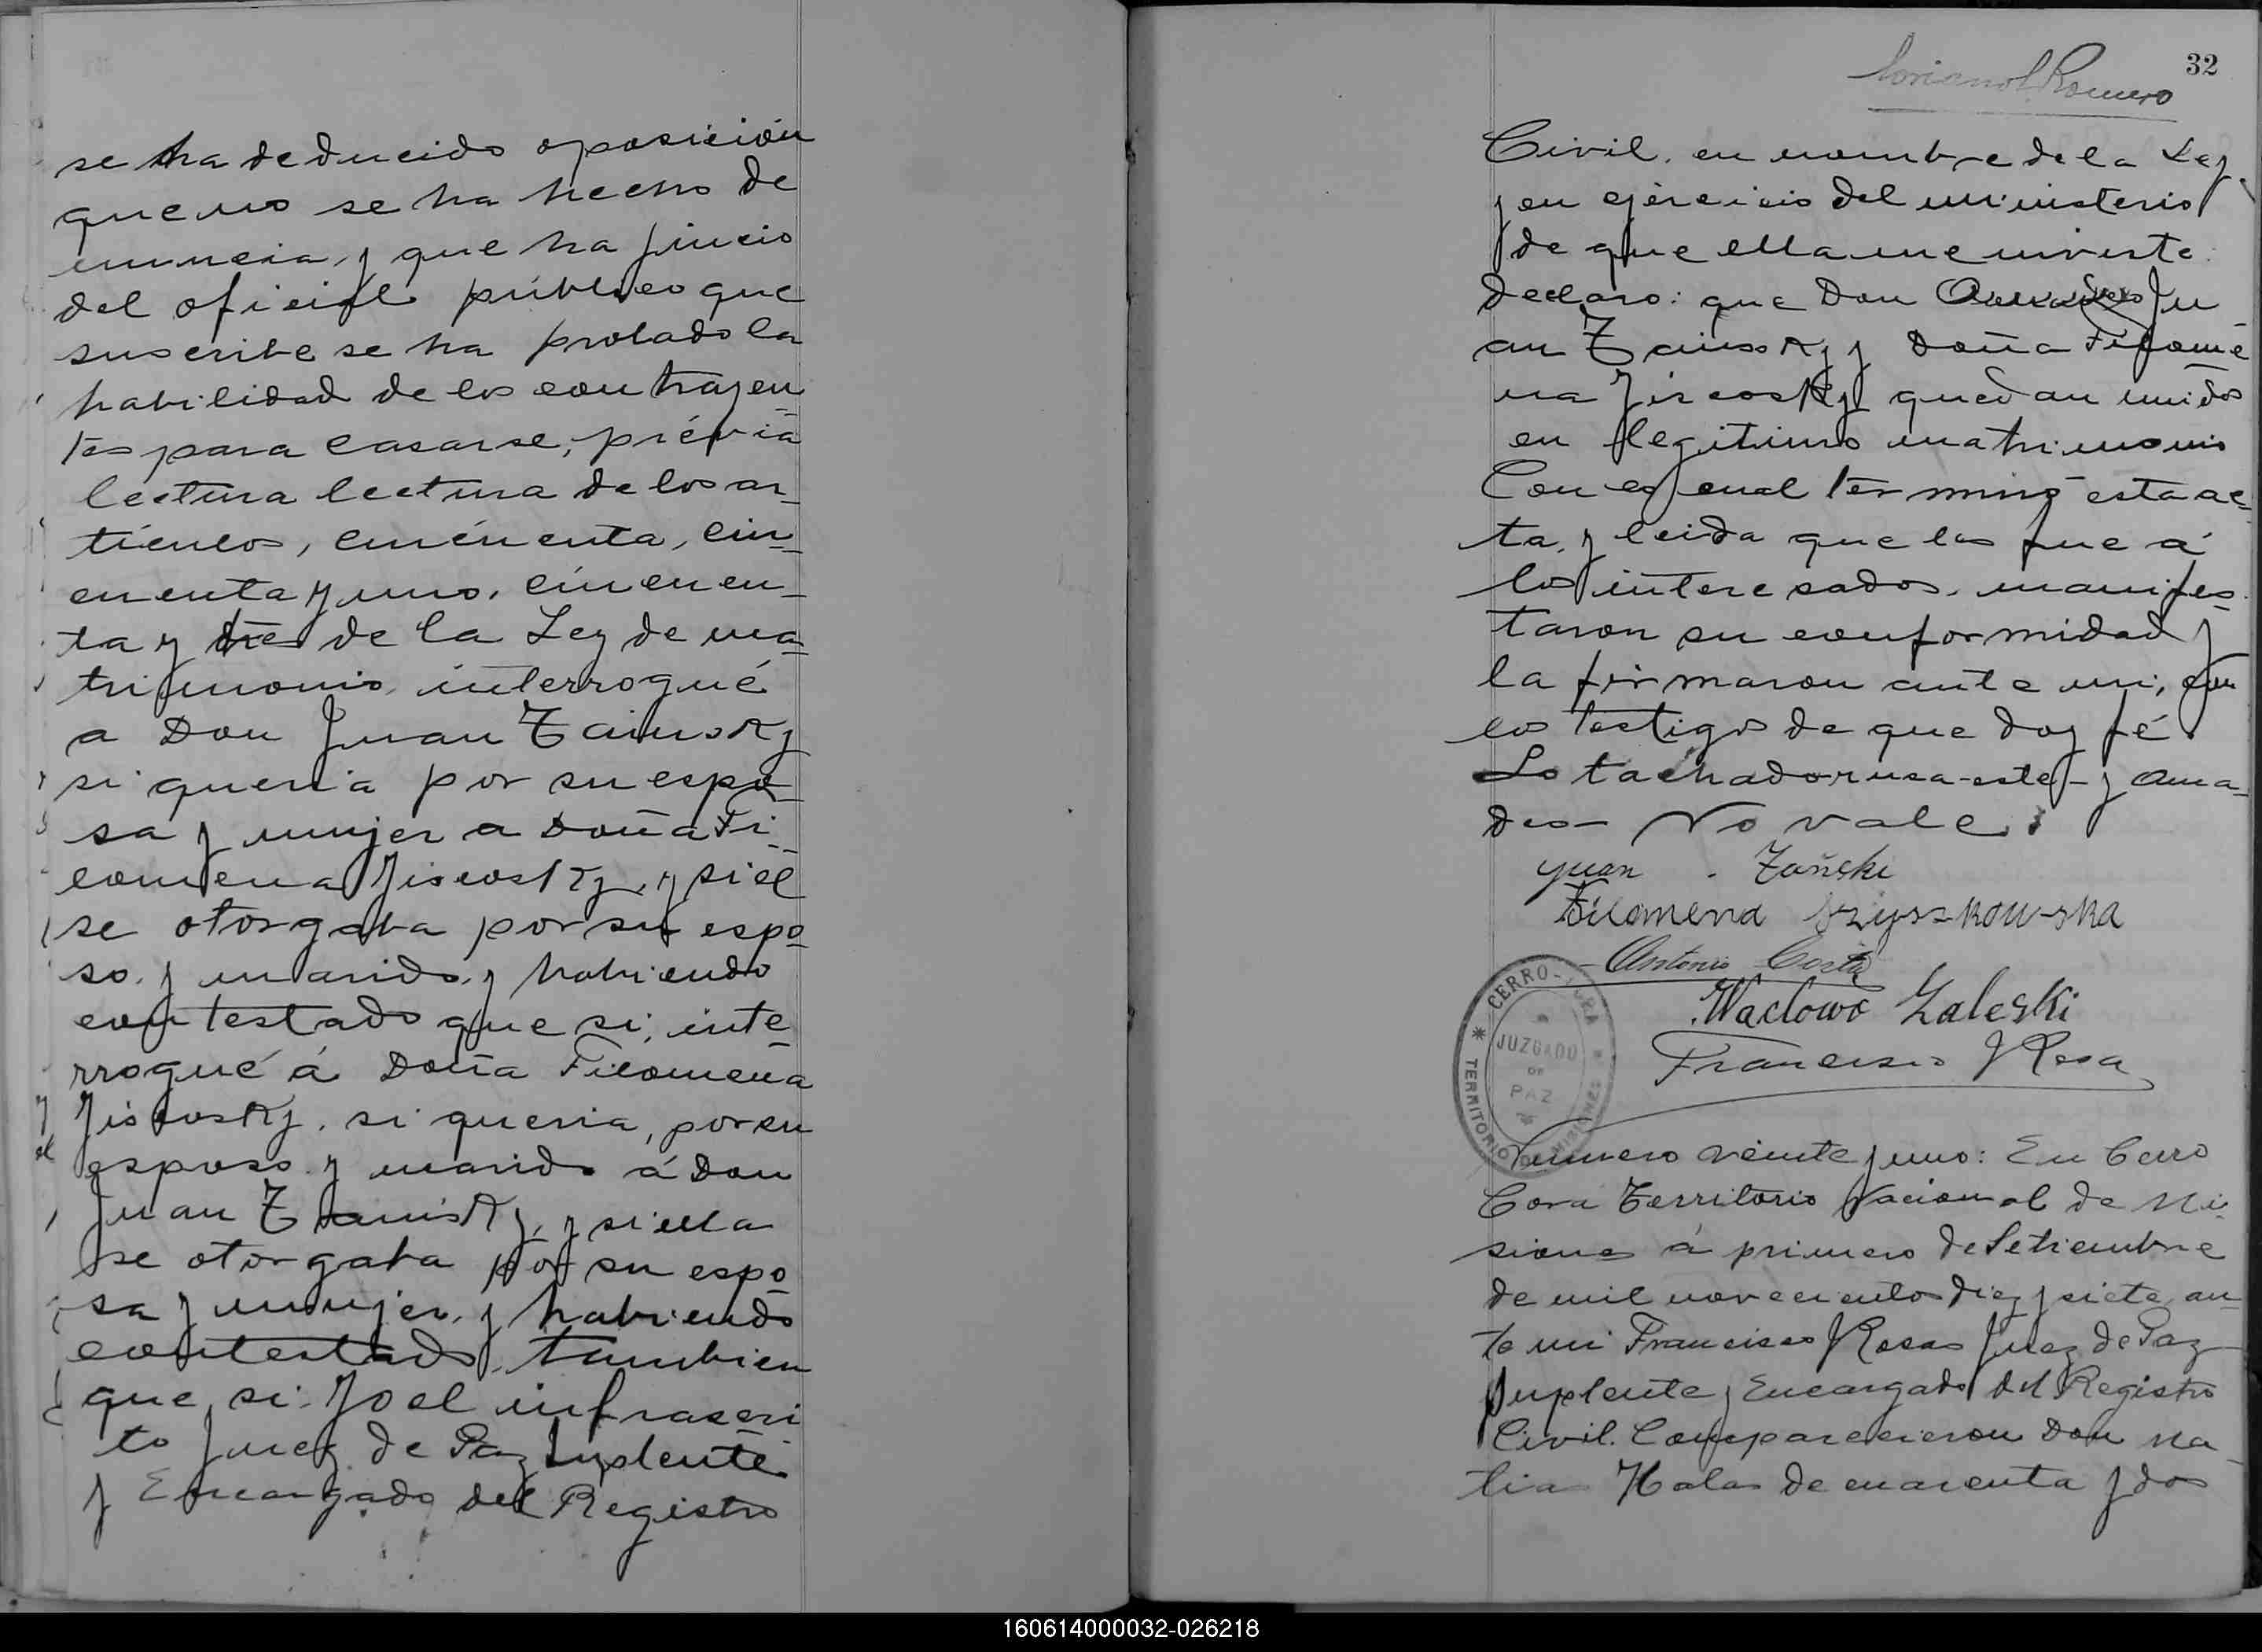 se ha deducido oposición
que no se ha hecho de
nuncia, y que ha juicio
del oficial público que
suscribe se ha probado la
habilidad de los contrayen
tes para casarse, prévia
lectura lectura de los ar
tículos, cincúenta, cin
cuenta y uno, cincuen
ta y tres de la Ley de ma
trimonio, interrogué
a Don Juan Tainsky
si queria por su espo
sa y mujer a Doña Fi
lomena Jiscosky, y si él
se otorgaba por su espo
so, y marido, y habiendo
contestado que si, inte
rrogué á Doña Filomena
Jiscosky, si queria, por su
esposo y marido á Don
Juan Tainsky, y si ella
se otorgaba por su espo
sa y mujer, y habiendo
contestado, tambien
que si. Yo el infrascri
to Juez de Paz Suplente
y Encargado del Registro
32
Romero
Civil, en nombre de la Ley
y en ejercicio del ministerio
de que ella me inviste
declaro: que Don Ju
an Tainsky y Doña Filome
na Jiscosky quedan unidos
en legitimo matrimonio
Con el cual terminó esta ac
ta, y leida que les fue á
los interesados, manifes
taron su conformidad y
la firmaron ante mi, con
los testigos de que doy fé
Lo tachado este y Ama
deo No vale
yuan . Zański
Filomena Szyszkowska
Antonio Costa
Waclowo Zaleski
Francisco Rosa
CERRO-CORA
JUZGADO
DE
PAZ
TERRITORIO DE MISIONES
Numero veinte y uno: En Cerro
Cora Territorio Nacional de Mi
siones á primero de Setiembre
de mil novecientos diez y siete, an
te mi Francisco Rosas Juez de Paz
Suplente y Encargado del Registro
Civil. Comparecieron Don Ma
tia Halas de cuarenta y dos
160614000032-026218